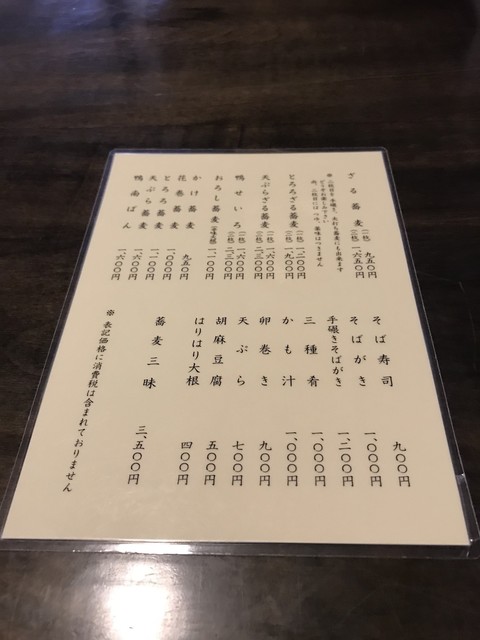 ざる蕎麦 (一枚) 九五〇円
(二枚) 一、六五〇円
※ 二枚目を
とろろざる蕎麦 (一枚) 一、二〇〇円
(二枚) 一、九〇〇円
天ぷらざる蕎麦 (一枚) 一、六〇〇円
(二枚) 二、三〇〇円
鴨せいろ (一枚) 一、六〇〇円
(二枚) 二、三〇〇円
おろし蕎麦 一、一〇〇円
かけ蕎麦 九五〇円
花巻蕎麦 一、〇〇〇円
とろろ蕎麦 一、一〇〇円
天ぷら蕎麦 一、六〇〇円
鴨南ばん 一、六〇〇円
そば寿司 九〇〇円
そばがき 一、〇〇〇円
手碾きそばがき 一、二〇〇円
三種肴 一、〇〇〇円
かも汁 一、〇〇〇円
卵巻き 九〇〇円
天ぷら 七〇〇円
胡麻豆腐 五〇〇円
はりはり大根 四〇〇円
蕎麦三昧 三、五〇〇円
※ 表記価格に消費税は含まれておりません